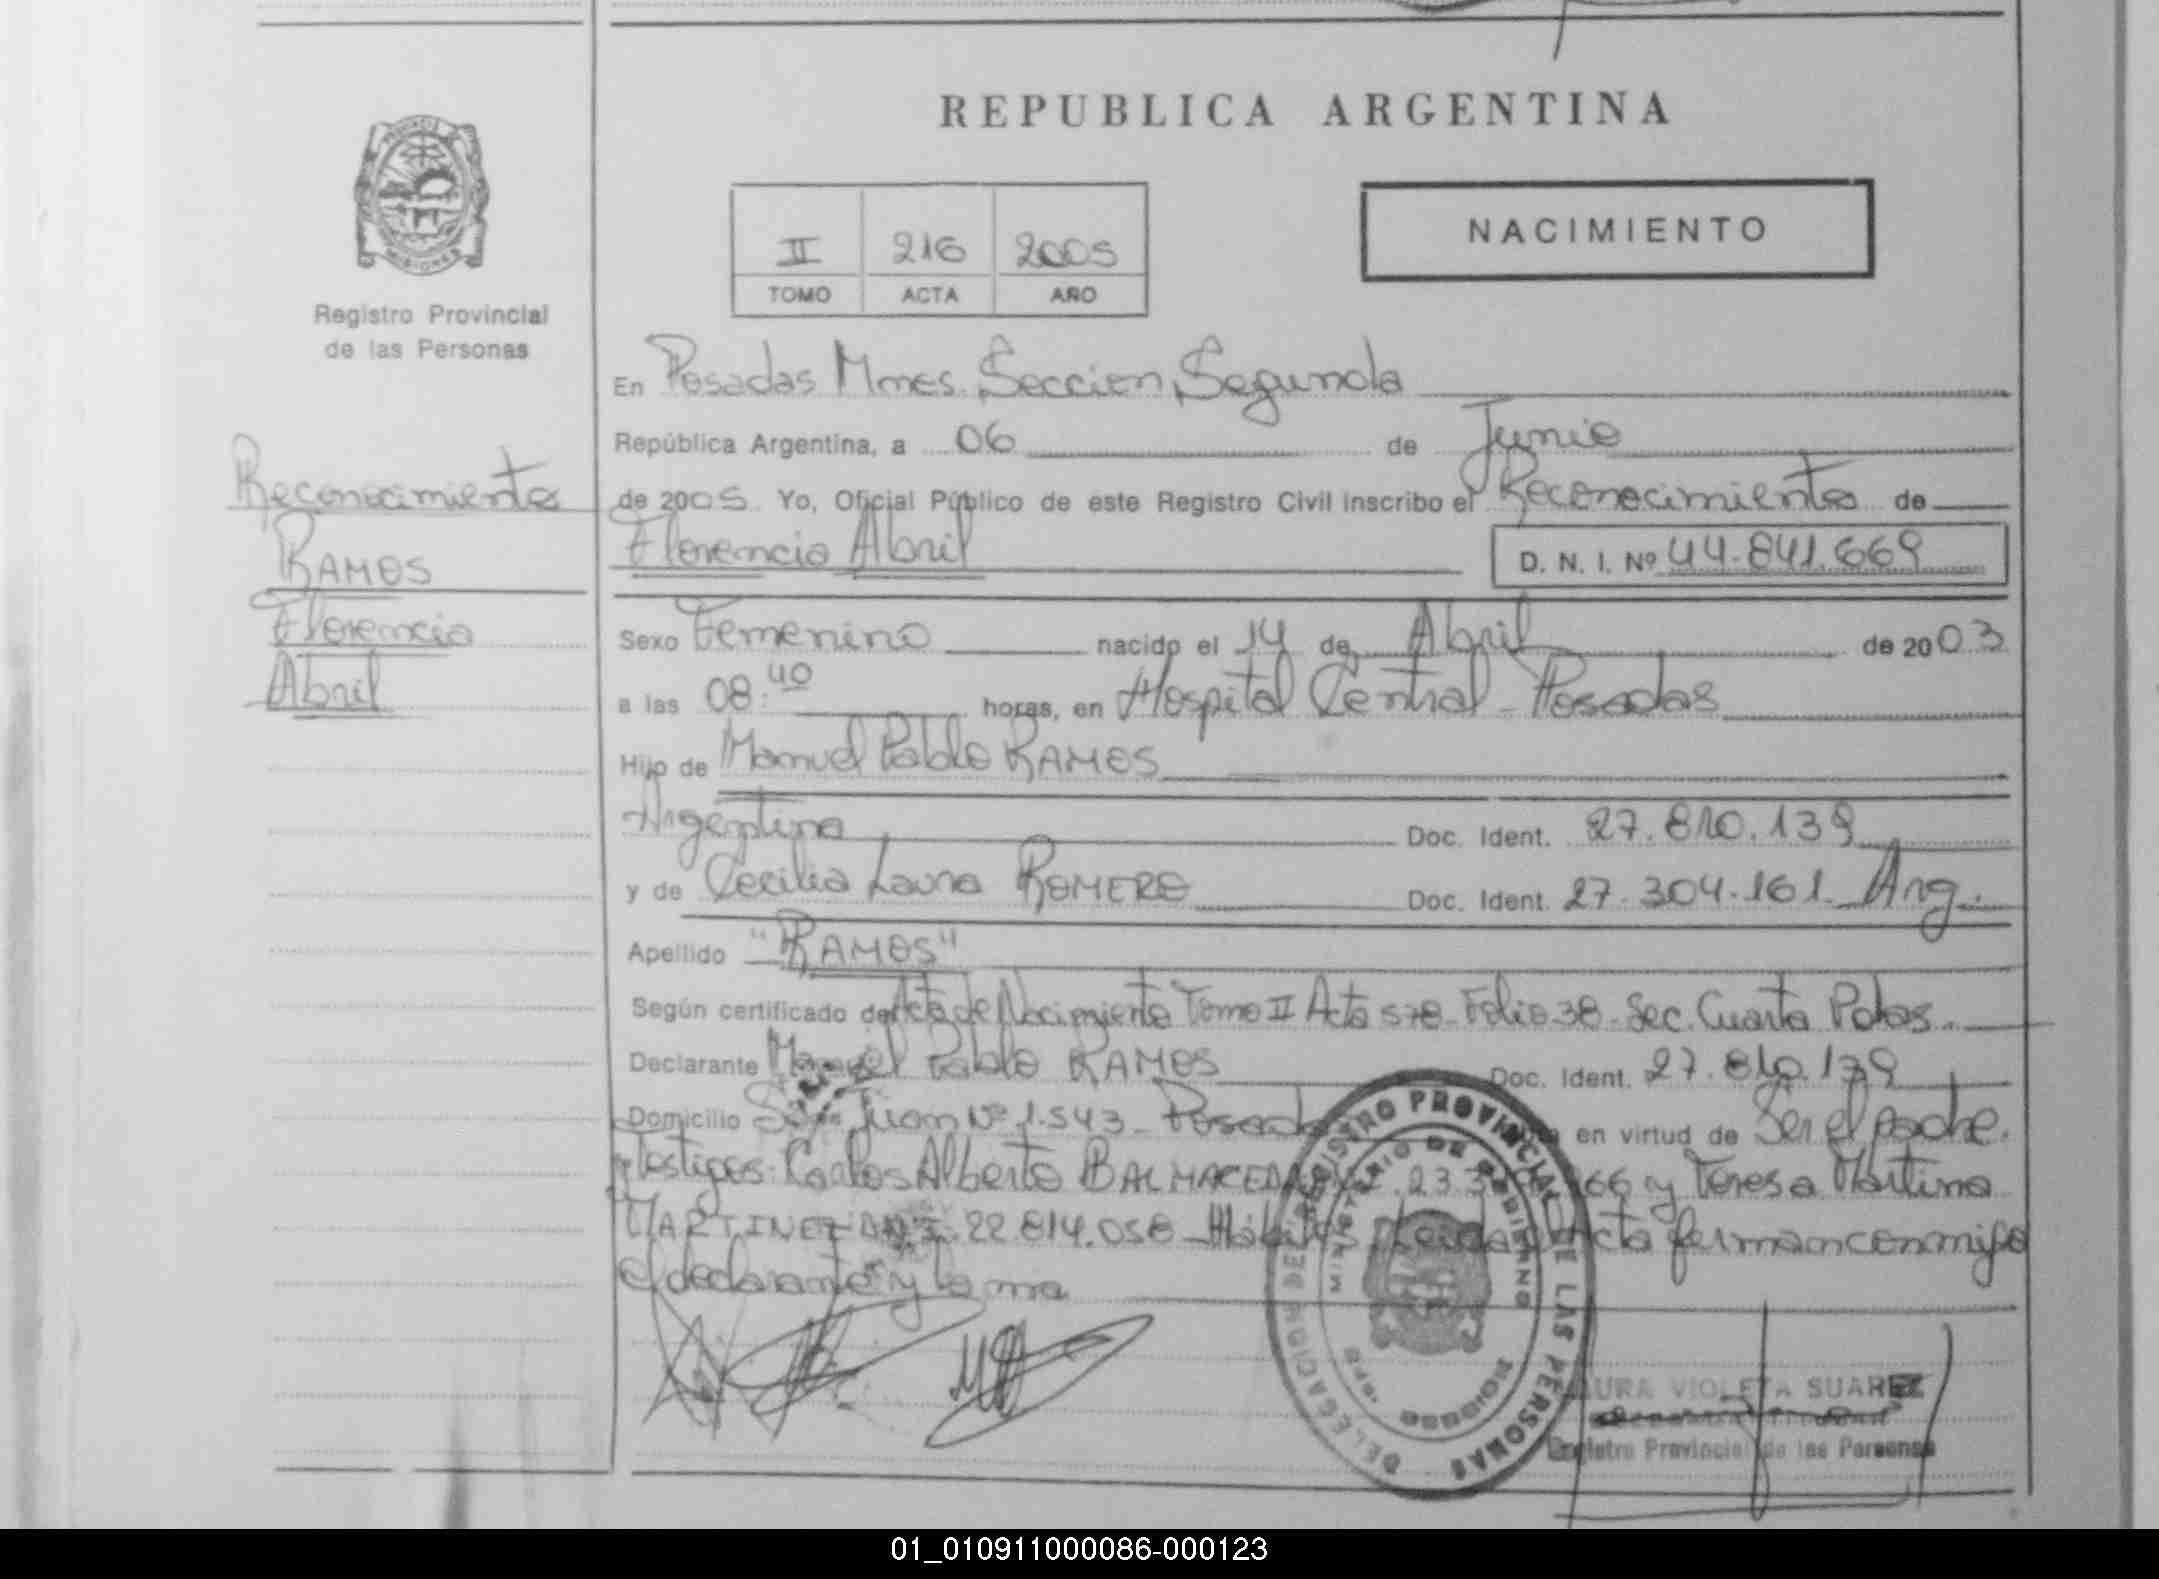 REPUBLICA ARGENTINA
NACIMIENTO
II 216 2005
TOMO ACTA AÑO
Registro Provincial
de las Personas
En Posadas Mnes. Sección Segunda
República Argentina, a 06 de Junio
Reconocimiento
RAMOS
Florencia
Abril
de 2005. Yo, Oficial Público de este Registro Civil inscribo el Reconocimiento de
Florencia Abril D. N. I. Nº 44.841.669
Sexo Femenino nacido el 14 de Abril de 2003
a las 08:40 horas, en Hospital Central - Posadas
Hijo de Manuel Pablo RAMOS
Argentina Doc. Ident. 27.810.139
y de Cecilia Laura ROMERO Doc. Ident. 27.304.161. Arg.
Apellido "RAMOS"
Según certificado de Acta de Nacimiento Tomo II Acta 578 - Folio 38 - Sec. Cuarta Pdas.
Declarante Manuel Pablo RAMOS Doc. Ident. 27.810.139
Domicilio San Juan Nº 1.543 - en virtud de Ser el padre.
Testigos: Carlos Alberto BALMACEDA 66 y Teresa Martina
MARTINEZ DNI. 22.814.058 - Hábiles Leida el Acta firman conmigo
el declarante y la ma
DELEGACION DEL REGISTRO PROVINCIAL DE LAS PERSONAS
MINISTERIO DE GOBIERNO
MISIONES
LAURA VIOLETA SUAREZ
Registro Provincial de las Personas
01_010911000086-000123